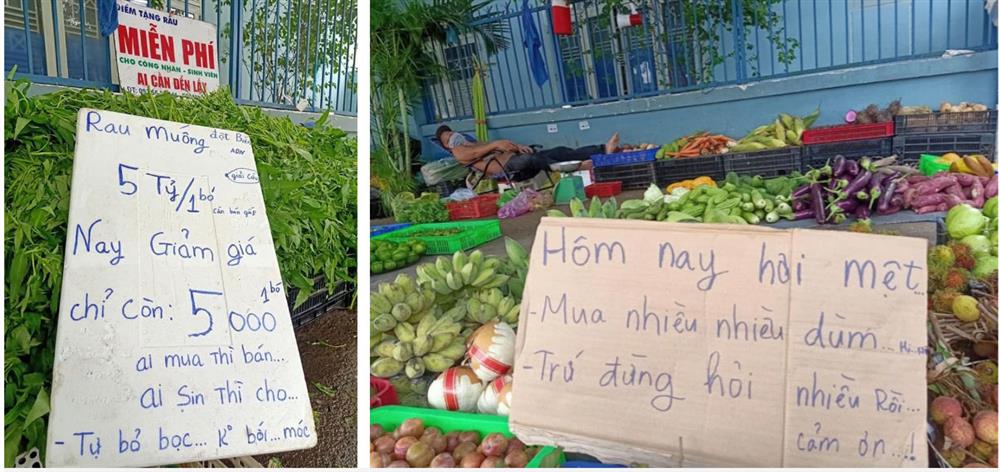 ĐIỂM TẶNG RAU
MIỄN PHÍ
CHO CÔNG NHÂN - SINH VIÊN
AI CẦN ĐẾN LẤY
Rau muống đột Biến
ADN
5 Tỷ/1bó
giải cứu
Cần bán gấp
Nay Giảm giá
chỉ còn: 5000 1bó
ai mua thì bán...
ai Sin Thì cho...
- Tự bỏ bọc... Kº bới...móc
Hôm nay hơi mệt...
- Mua nhiều nhiều dùm...
- Trứ đừng hỏi nhiều Rồi...
cảm ơn...!